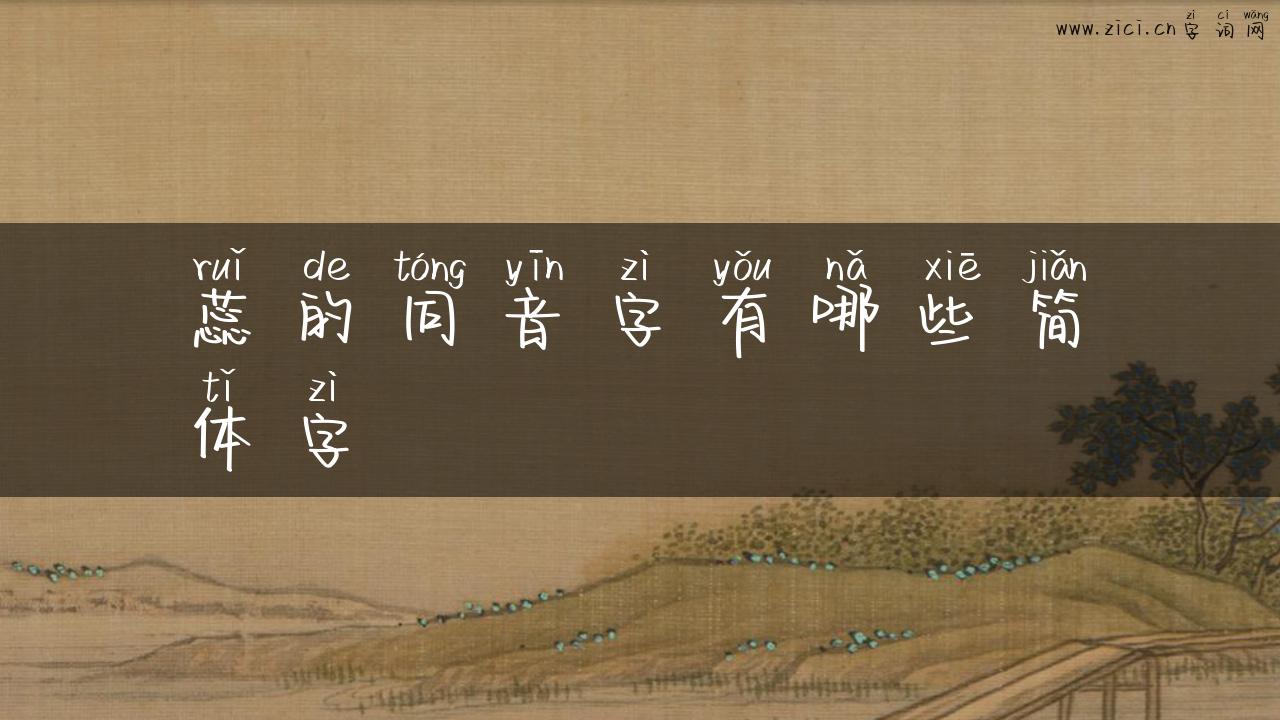 zì cí wǎng
www.zici.cn字词网
ruǐ de tóng yīn zì yǒu nǎ xiē jiǎn
蕊的同音字有哪些简
tǐ zì
体字